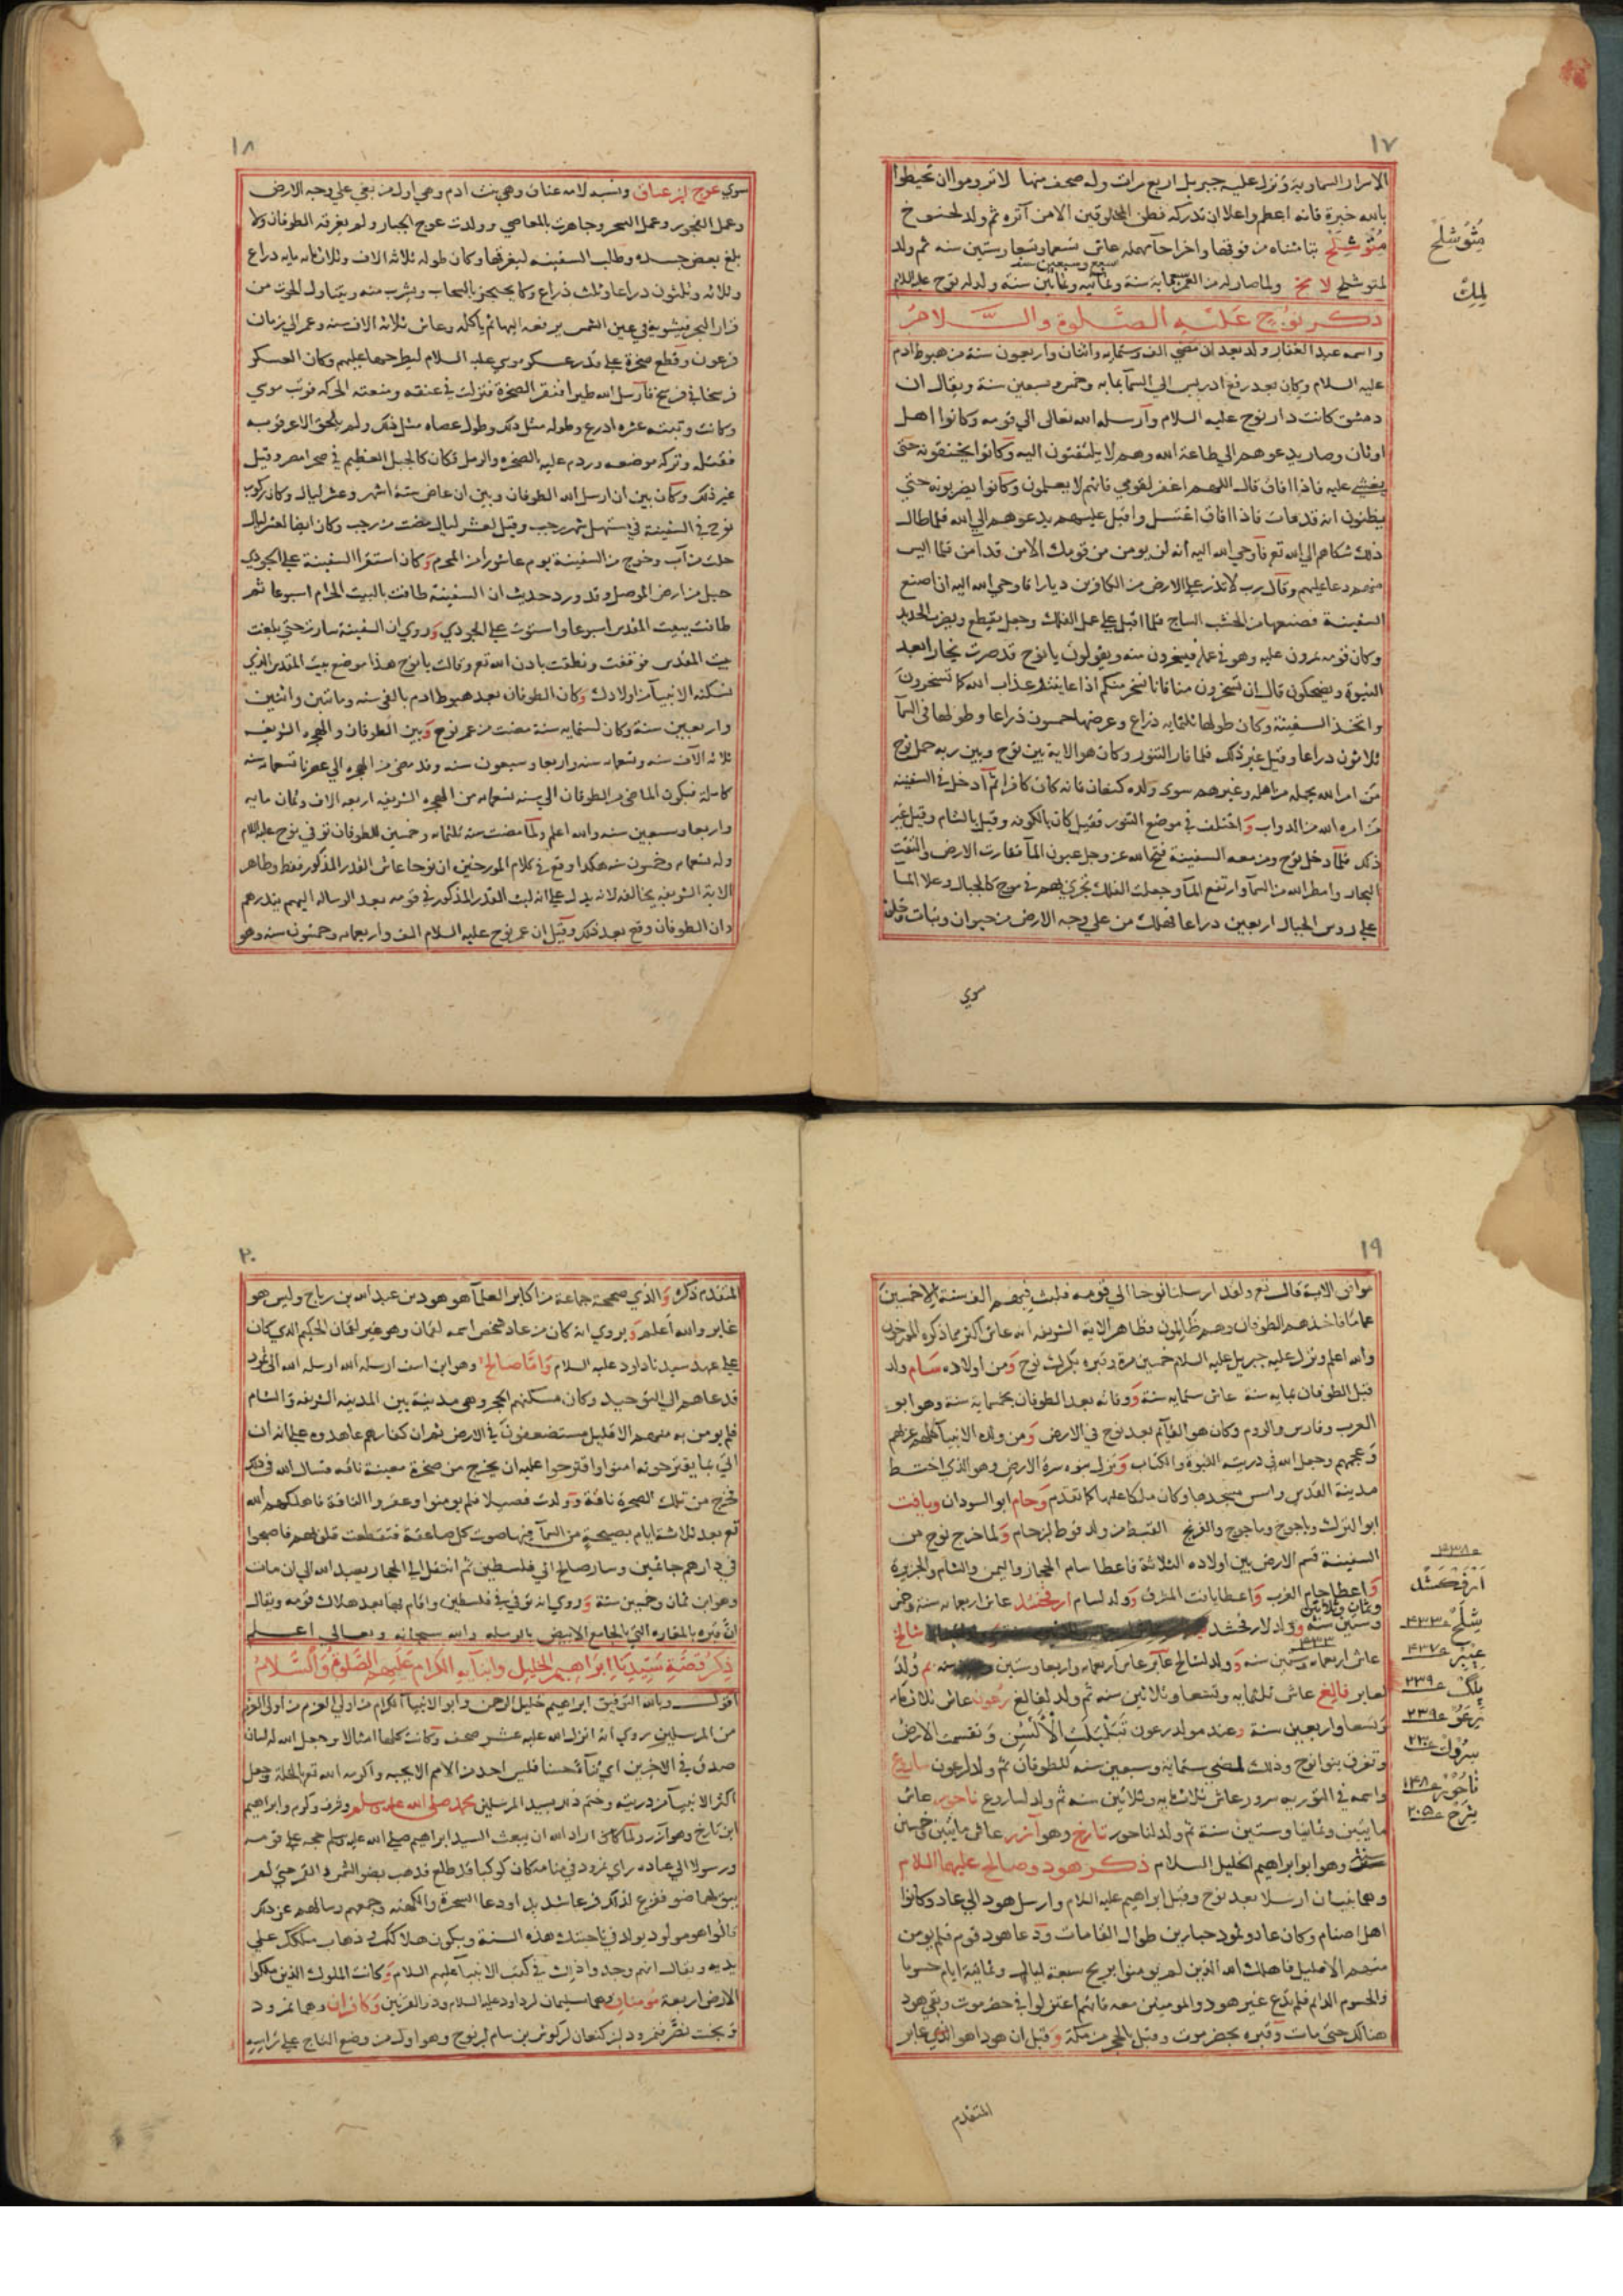 ١٧
الاسرار السماوية ونزل عليه جبريل اربع مرات وله صحف منها لا تروموا ان تحيطوا
بالله خبرة فانه اعظم واعلا ان تدركه فطن المخلوقين الا من آثره ثم ولد لحنوخ
مُتُوشِلَح بتا مثناه من فوقها واخرا حا مهمله عاش تسعمايه وتسعا وستين سنه ثم ولد
لمتوشلح لامخ ولما صار له من العمر
سبع وسبعين سنه
وثمانية وثمانين سنة ولد له نوح عليه السلام
مِتُوشَلَحْ
لمك
ذكر نوح عليه الصلوة والسلام
واسمه عبد الغفار ولد بعد ان مضي الف وستمايه واثنان واربعون سنة من هبوط ادم
عليه السلام وكان بعد رفع ادريس الى السما بمايه وخمس وسبعين سنة ويقال ان
دمشق كانت دار نوح عليه السلام وارسله الله تعالى الي قومه وكانوا اهل
اوثان وصار يدعوهم الي طاعة الله وهم لا يلتفتون اليه وكانوا يخنقونه حتى
يغشي عليه فاذا افاق قال اللهم اغفر لقومي فانهم لا يعلمون وكانوا يضربونه حتي
يظنون انه قد مات فاذا افاق اغتسل واقبل عليهم يدعوهم الي الله فلما طال
ذلك شكاهم الي الله تع فاوحي الله اليه انه لن يومن من قومك الا من قد آمن فلما ايس
منهم دعا عليهم وقال رب لا تذر على الارض من الكافرين ديارا فاوحي الله اليه ان اصنع
السفينة فصنعها من الخشب الساج فلما اقبل علي عمل الفلك وجعل يقطع ويضرب الحديد
وكان قومه يمرون عليه وهو في عمله فيسخرون منه ويقولون يا نوح قد صرت نجارا بعد
النبوة ويضحكون قال ان تسخرون منا فانا نسخر منكم اذا عاينتم عذاب الله كما تسخرون
واتخذ السفينة وكان طولها ثلثمايه ذراع وعرضها خمسون ذراعا وطولها في السما
ثلاثون ذراعا وقيل غير ذلك فلما فار التنور وكان هو الاية بين نوح وبين ربه حمل نوح
من امر الله بحمله من اهله وغيرهم سوى ولده كنعان فانه كان كافرا ثم ادخل في السفينه
من امره الله من الدواب واختلف في موضع التنور فقيل كان بالكوفه وقيل بالشام وقيل غير
ذلك فلما دخل نوح ومن معه السفينة فتح الله عز وجل عيون الما ففارت الارض والتقت
البحار وامطر الله من السما وارتفع الما وجعلت الفلك تجري بهم في موج كالجبال وعلا الما
علي روس الجبال اربعين ذراعا فهلك من علي وجه الارض من حيوان ونبات
سوي
١٨
سوي عوج بن عناق ونسبه لامه عناق وهي بنت ادم وهي اول من بغي علي وجه الارض
وعمل الفجور وعمل السحر وجاهرت بالمعاصي وولدت عوج الجبار ولم يغرقه الطوفان ولا
بلغ بعض جسده وطلب السفينه ليغرقها وكان طوله ثلاثه الاف وثلاثمايه ذراع
وثلاثه وثلثون ذراعا وثلث ذراع وكان يحتجز بالسحاب ويشرب منه ويتناول الحوت من
قرار البحر فيشويه في عين الشمس يرفعه اليها ثم ياكله وعاش ثلاثه الاف سنه وعمر الي زمان
فرعون وقطع صخرة علي قدر عسكر موسى عليه السلام ليطرحها عليهم وكان العسكر
فرسخا في فرسخ فارسل الله طيرا فنقر الصخرة فنزلت في عنقه ومنعته الحركه فوثب موسي
وكانت وثبته عشره اذرع وطوله مثل ذلك وطول عصاه مثل ذلك ولم يلحق الا عرقوبه
فقتله وتركه موضعه وردم عليه بالصخر والرمل فكان كالجبل العظيم في صحرا مصر وقيل
غير ذلك وكان بين ان ارسل الله الطوفان وبين ان غاض ستة اشهر وعشر ليال وكان ركوب
نوح في السفينة في مستهل شهر رجب وقيل لعشر ليال مضت من رجب وكان ايضا لعشر ليال
خلت من آب وخرج من السفينة يوم عاشورا من المحرم وكان استقرا السفينة علي الجودي
جبل من ارض الموصل وقد ورد حديث ان السفينة طافت بالبيت الحرام اسبوعا ثم
طافت ببيت المقدس اسبوعا واستوت علي الجودي وروي ان السفينة سارت حتي بلغت
بيت المقدس فوقفت ونطقت باذن الله تع وقالت يا نوح هذا موضع بيت المقدس الذي
تسكنه الانبيا من اولادك وكان الطوفان بعد هبوط ادم بالفي سنه ومايتين واثنين
واربعين سنة وكان لستمايه سنة مضت من عمر نوح وبين الطوفان والهجره الشريفه
ثلاثه الآف سنه وتسعمايه سنه واربعا وسبعون سنه وقد مضى من الهجره الي عصرنا تسعمايه سنه
كامله فيكون الماضي من الطوفان الي سنه تسعمايه من الهجره الشريفه اربعه الاف وثمان مايه
واربعا وسبعين سنه والله اعلم ولما مضت سنه ثلثمايه وخمسين للطوفان توفي نوح عليه السلام
وله تسعمايه وخمسون سنه هكذا وقع في كلام المورخين ان نوحا عاش القدر المذكور فقط وظاهر
الاية الشريفه يخالفه لانه يدل علي انه لبث القدر المذكور في قومه بعد الرسالة اليهم ينذرهم
وان الطوفان وقع بعد ذلك وقيل ان عمر نوح عليه السلام الف واربعمايه وخمسون سنه وهو
١٩
موافق الاية قال تع ولقد ارسلنا نوحا الي قومه فلبث فيهم الف سنة الا خمسين
عاما فاخذهم الطوفان وهم ظالمون فظاهر الاية الشريفه انه عاش اكثر مما ذكره المورخون
والله اعلم ونزل عليه جبريل عليه السلام خمسين مرة وقبره بكرك نوح ومن اولاده سَام ولد
قبل الطوفان بمايه سنة عاش ستمايه سنة ووفاته بعد الطوفان بخمسماية سنة وهو ابو
العرب وفارس والروم وكان هو القايم بعد نوح في الارض ومن ولده الانبيا كلهم عربهم
وعجمهم وجعل الله في ذريته النبوة والكتاب ونزل سره الارض وهو الذي اختط
مدينة القدس واسس مسجدها وكان ملكا عليها كما تقدم وحام ابو السودان ويافت
ابو الترك وياجوج وماجوج والفرنج القبط من ولد قوط بن حام ولما خرج نوح من
السفينة قسم الارض بين اولاده الثلاثة فاعطا سام الحجاز واليمن والشام والجزيرة
واعطا حام الغرب واعطا يافت المشرق وولد لسام ارفخشد عاش اربعمايه سنة وخمس
وثمان وثلاثين
وستين سنة وولد لارفخشد شالخ
٤٣٣
عاش اربعمايه وستين سنه وولد لشالخ عابر عاش اربعمايه واربعا وستين سنه ثم وُلد
لعابر فالغ عاش ثلثمايه وتسعا وثلاثين سنه ثم ولد لفالغ رعون عاش ثلاثمايه
وتسعا واربعين سنة وعند مولد رعون تَبَلْبَلَتِ الْأَلْسُن وتقسمت الارض
وتفرق بنوا نوح وذلك لمضي ستمايه وسبعين سنه للطوفان ثم ولد لرعون ساروع
واسمه في التوريه سرور عاش ثلاثمايه وثلاثين سنه ثم ولد لساروع ناحور عاش
مايتين وثمانيا وستين سنة ثم ولد لناحور تارخ وهو آزر عاش مايتين وخمسين
سنة وهو ابو ابراهيم الخليل السلام ذكر هود وصالح عليهما السلام
وهما نبيان ارسلا بعد نوح وقبل ابراهيم عليه السلام وارسل هود الي عاد وكانوا
اهل اصنام وكان عاد وثمود جبارين طوال القامات ودعا هود قومه فلم يومن
منهم الا قليل فاهلك الله الذين لم يومنوا بريح سبعة ليال وثمانية ايام حسوما
والحسوم الدايم فلم تدع غير هود والمومنين معه فانهم اعتزلوا في حضرموت وبقي هود
هنالك حتى مات وقبره بحضرموت وقيل بالحجر من مكة وقيل ان هودا هو الذي عابر
٤٣٨
اَرْفَكْشَد
شِلَحْ ٤٣٣
عِبْر ٤٣٧
پلگ ٢٣٩
رَعُو ٢٣٩
سروك
ناحُور ١٤٨
تِرَخ ٢٠٥
المتقدم
٢٠
المتقدم ذكره والذي صححه جماعة من اكابر العلما هو هود بن عبد الله بن رباح وليس هو
عابر والله اعلم ويروي انه كان من عاد شخص اسمه لقمان وهو غير لقمان الحكيم الذي كان
علي عهد سيدنا داود عليه السلام وَامّا صالح وهو ابن اسف ارسله الله ارسله الله الي ثمود
فدعاهم الي التوحيد وكان مسكنهم الحجر وهي مدينة بين المدينه الشريفه والشام
فلم يومن به منهم الا قليل مستضعفون في الارض ثم ان كفارهم عاهدوه علي انه ان
اتي بما يقترحونه امنوا واقترحوا عليه ان يخرج من صخرة معينة ناقه فسال الله في ذلك
فخرج من تلك الصخرة ناقة وولدت فصيلا فلم يومنوا وعقروا الناقة فاهلكهم الله
تع بعد ثلاثة ايام بصيحة من السما فيها صوت كل صاعقة فتقطعت قلوبهم فاصبحوا
في دارهم جاثمين وسار صالح الي فلسطين ثم انتقل الي الحجاز يعبد الله الي ان مات
وهو ابن ثمان وخمسين سنة وروي انه توفي في فلسطين واقام بها بعد هلاك قومه ويقال
انّ قبره بالمغاره التي بالجامع الابيض بالرمله والله سبحانه وتعالى اعلم
ذِكرُ قصّة سيّدنا ابراهيم الخليل وابنايه الكرام عليهم الصلوة والسلام
اقول وبالله التوفيق ابراهيم خليل الرحمن وابو الانبيا الكرام من اولي العزم
من المرسلين روي انه انزل الله عليه عشر صحف وكانت كلها امثالا وجعل الله له لسان
صدق في الاخرين اي ثنآ حسنا فليس احد من الامم الا يحبه واكرمه الله تع بالخلة وجعل
اكثر الانبيا من ذريته وختم ذلك بسيد المرسلين محمد صلى الله عليه وسلم وشرف وكرم وابراهيم
ابن تارخ وهو آزر ولما كان اراد الله ان يبعث السيد ابراهيم صلي الله عليه وسلم حجه علي قومه
ورسولا الي عباده راي نمرود في منامه كان كوكبا قد طلع فذهب بضو الشمس والقمر حتي لم
يبق لهما ضو ففزع لذلك فزعا شديدا ودعا السحرة والكهنه وجمعهم وسالهم عن ذلك
فقالوا هو مولود يولد في ناحيتك هذه السنة ويكون هلاكك وذهاب ملكك علي
يديه ويقال انهم وجدوا ذلك في كتب الانبيا عليهم السلام وكانت الملوك الذين ملكوا
الارض اربعة مومنان وهما سليمان بن داود عليه السلام وذو القرنين وكافران وهما نمرود
وبخت نصّر فنمرود بن كنعان بن كوش بن سام بن نوح وهو اول من وضع التاج علي راسه